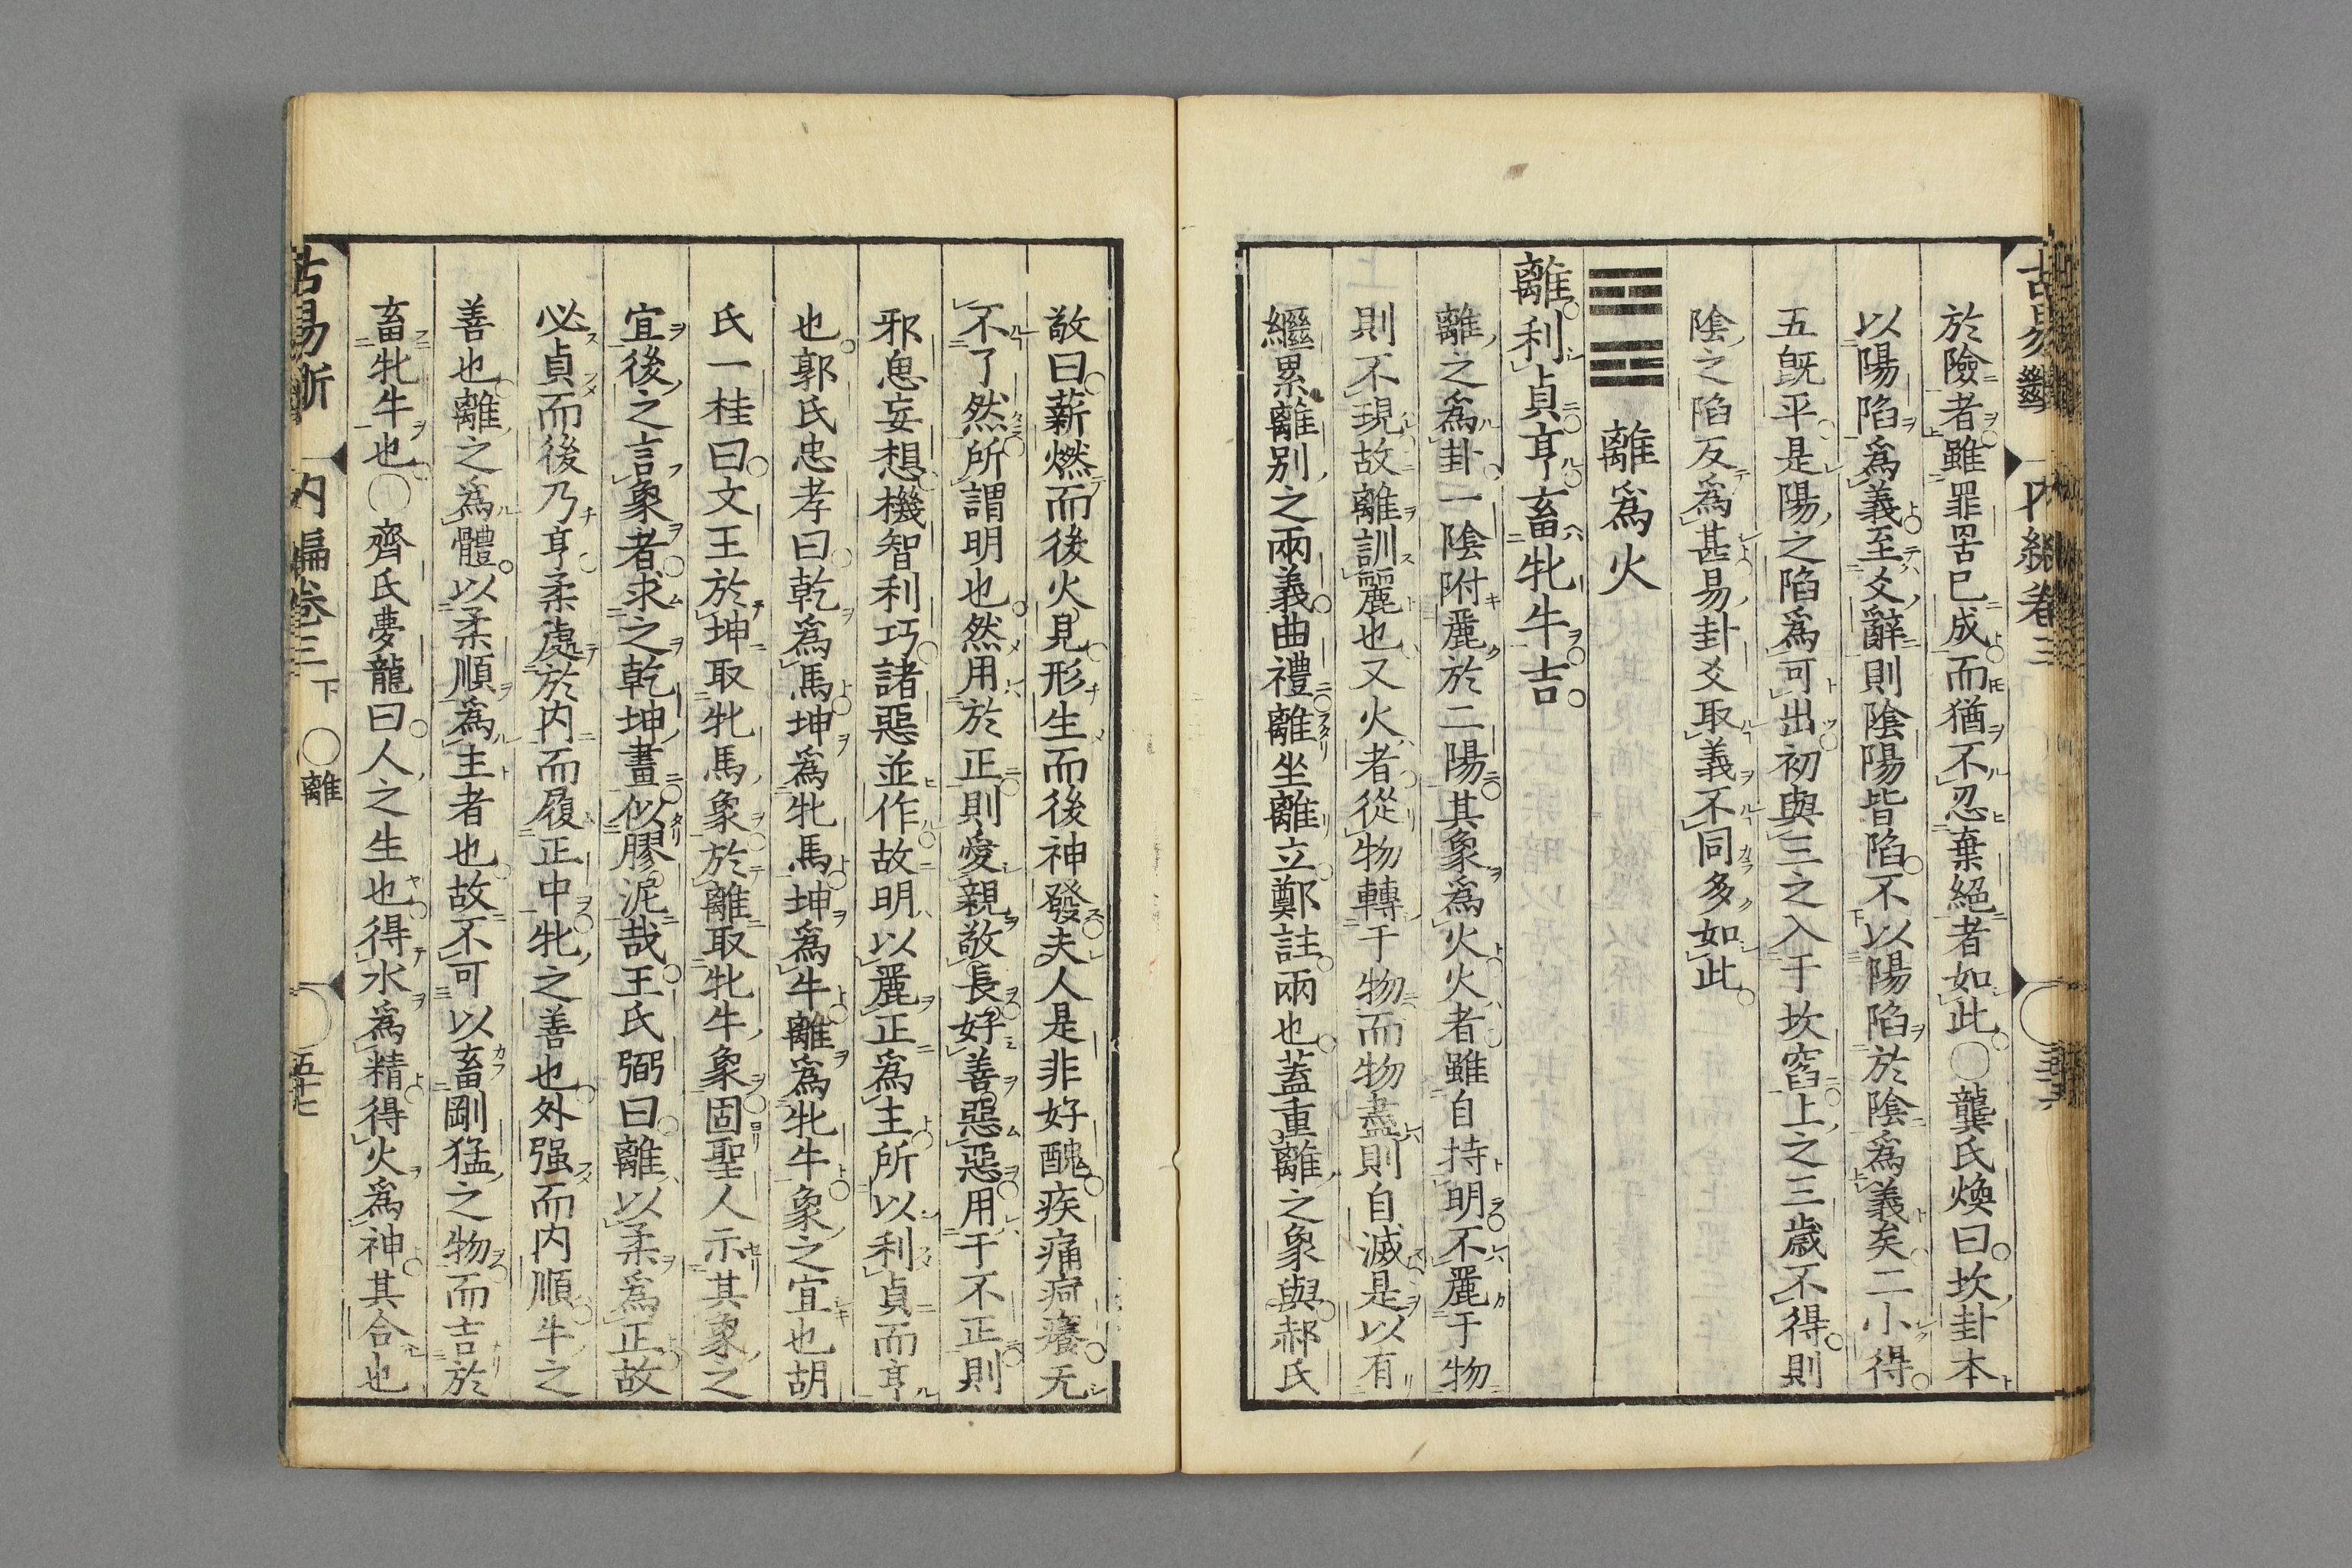 於險者雖罪罟已成而猶不忍棄絕者如此〇龔氏煥曰坎卦本
以陽陷爲義至爻辭則陰陽皆陷不以陽陷於陰爲義矣二小得
五旣平是陽之陷爲可出初與三之入于坎窞上之三歲不得則
陰之陷反爲甚易卦爻取義不同多如此
離爲火
離利貞亨畜牝牛吉
離之爲卦一陰附麗於二陽其象爲火火者雖自持明不麗于物
則不現故離訓麗也又火者從物轉于物而物盡則自滅是以有
繼累離別之兩義曲禮離坐離立鄭註兩也蓋重離之象與郝氏
敬曰薪燃而後火見形生而後神發夫人是非好醜疾痛痾癢无
不了然所謂明也然用於正則愛親敬長好善惡惡用于不正則
邪思妄想機智利巧諸惡並作故明以麗正爲主所以利貞而亨
也郭氏忠孝曰乾爲馬坤爲牝馬坤爲牛離爲牝牛象之宜也胡
氏一桂曰文王於坤取牝馬象於離取牝牛象固聖人示其象之
宜後之言象者求之乾坤畫似膠泥哉王氏弼曰離以柔爲正故
必貞而後乃亨柔處於內而履正中牝之善也外强而內順牛之
善也離之爲體以柔順爲主者也故不可以畜剛猛之物而吉於
畜牝牛也〇齊氏夢龍曰人之生也得水爲精得火爲神其合也
古易斷 內編卷三下 〇離 五十七